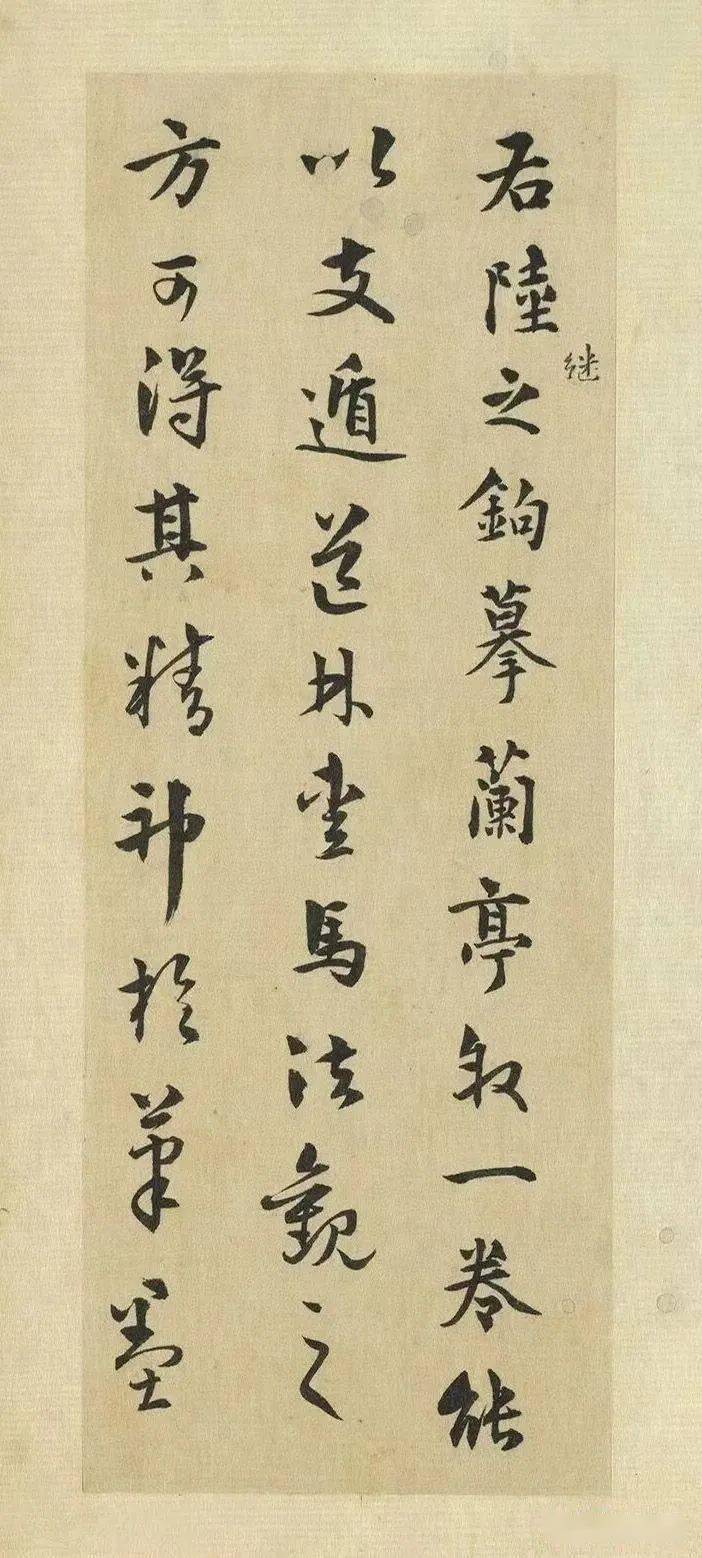 右陸継之鉤摹蘭亭叙一卷能
以支遁道林愛馬法觀之
方可得其精神於筆墨